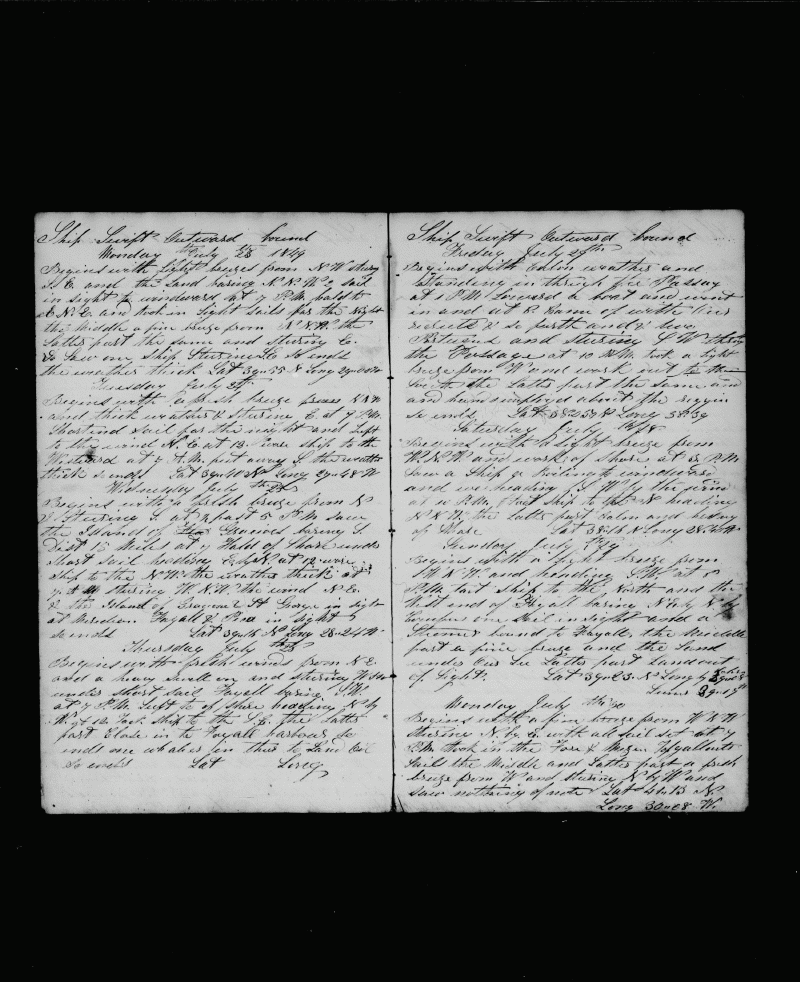 Ship Swift Outward bound
Monday July 23 1849
Begins with Light breeze from N W steering
S. E. and the Land baring N N. W 2 sail
in sight to windward at 7 P.M. hald to
E N. E. and took in Light Sails for the Night
the Middle a fine breeze from N. N. W. the
Latter part the same and stearing E.
& Saw one Ship Stearing So ends
the weather thick Lat 39-35 N Long
Tuesday July 24
Begins with a fresh breeze from N N W
and thick weather & Stearing E at 7 P.M.
Shortend Sail for the night and Luft
to the wind N. E. at 12 Wore ship to the
Westward at 7 A.M. put away S the weather
thick So ends Lat 39-40 N Long 29-48 W
Wednesday July 25
Begins with a fresh breeze from N
& Stearing S. at past 5 P.M. saw
the Island of Graciose baring S.
Dist 15 Miles at 7 Hald of Shore under
Short Sail heading E by N. at 12 wore
Ship to the N W the weather thick at
7 stearing W. N. W. the wind N. E.
& the Island Graciose St George in sight
at Meridian Fayall & Pico in Sight
So ends Lat 39 N. Long 28-24 W
Thursday July 26
Begins with fresh winds from N E
and a heavy swell on and stearing W
under short sail Fayall baring S. W.
at 7 P.M. Luft to of Shore heading N by
W. at 12 Tack Ship to the S. E. the Latter
part Close in to Fayall harbour
ends one whaler in thare to Land Oil
So ends Lat Long
Ship Swift Outward bound
Friday July 27th
Begins with Calm weather and
Standing in through the Passag
at 1 P.M. Lowerd a boat and went
in and at
recruits & so forth and &
Between and stearing S W through
the Passage at 10 P.M. Took a Light
breeze from W and work out
the Latter part the same
and hands employed about the riggin
So ends Lat 38-59 N Long 28-39
Saturday July 28
Begins with a Light breeze from
W N W and work of Shore at 3 P.M.
Saw a Ship a Sailing to windward
and we heading S. W by the wind
at 10 P.M. Tact Ship to the N heading
N N W. the Latter part Calm and heavy
of Shore Lat 38-16 N Long 28-40 W
Sunday July 29
Begins with a Light breeze from
W N W. and heading S W. at 8
P.M. tact ship to the North and the
West end of Fayall baring N by W
one Sail in sight and a
Steamer bound to Fayall, the Middle
part a fine breeze and the Land
under Our Lee Latter part Land out
of Sight. Lat 39-03. N Long by
Lunar
Monday July the 30
Begins with a fine breeze from W N W
stearing N. by E. with all sail set at 7
P.M. took in the Fore & Mizen Topgallant
Sails the Middle and Latter part a fresh
breeze from W and stearing N by W and
saw nothing of note Lat 41-13 N.
Long 30-08 W.